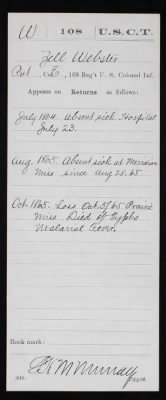 W 108 U.S.C.T.
Zell Webster
Pvt., Co. D, 108 Reg't U. S. Colored Inf.
Appears on Returns as follows:
July 1864. absent sick Hospital
July 23.
Aug. 1865. Absent sick at Meridian
Miss since Aug 25.65
Oct. 1865. Loss Oct. 5/65 Prairie
Miss Died of Typho
Malarial Fever.
Book mark:
E. W. M. Murray
Copyist.